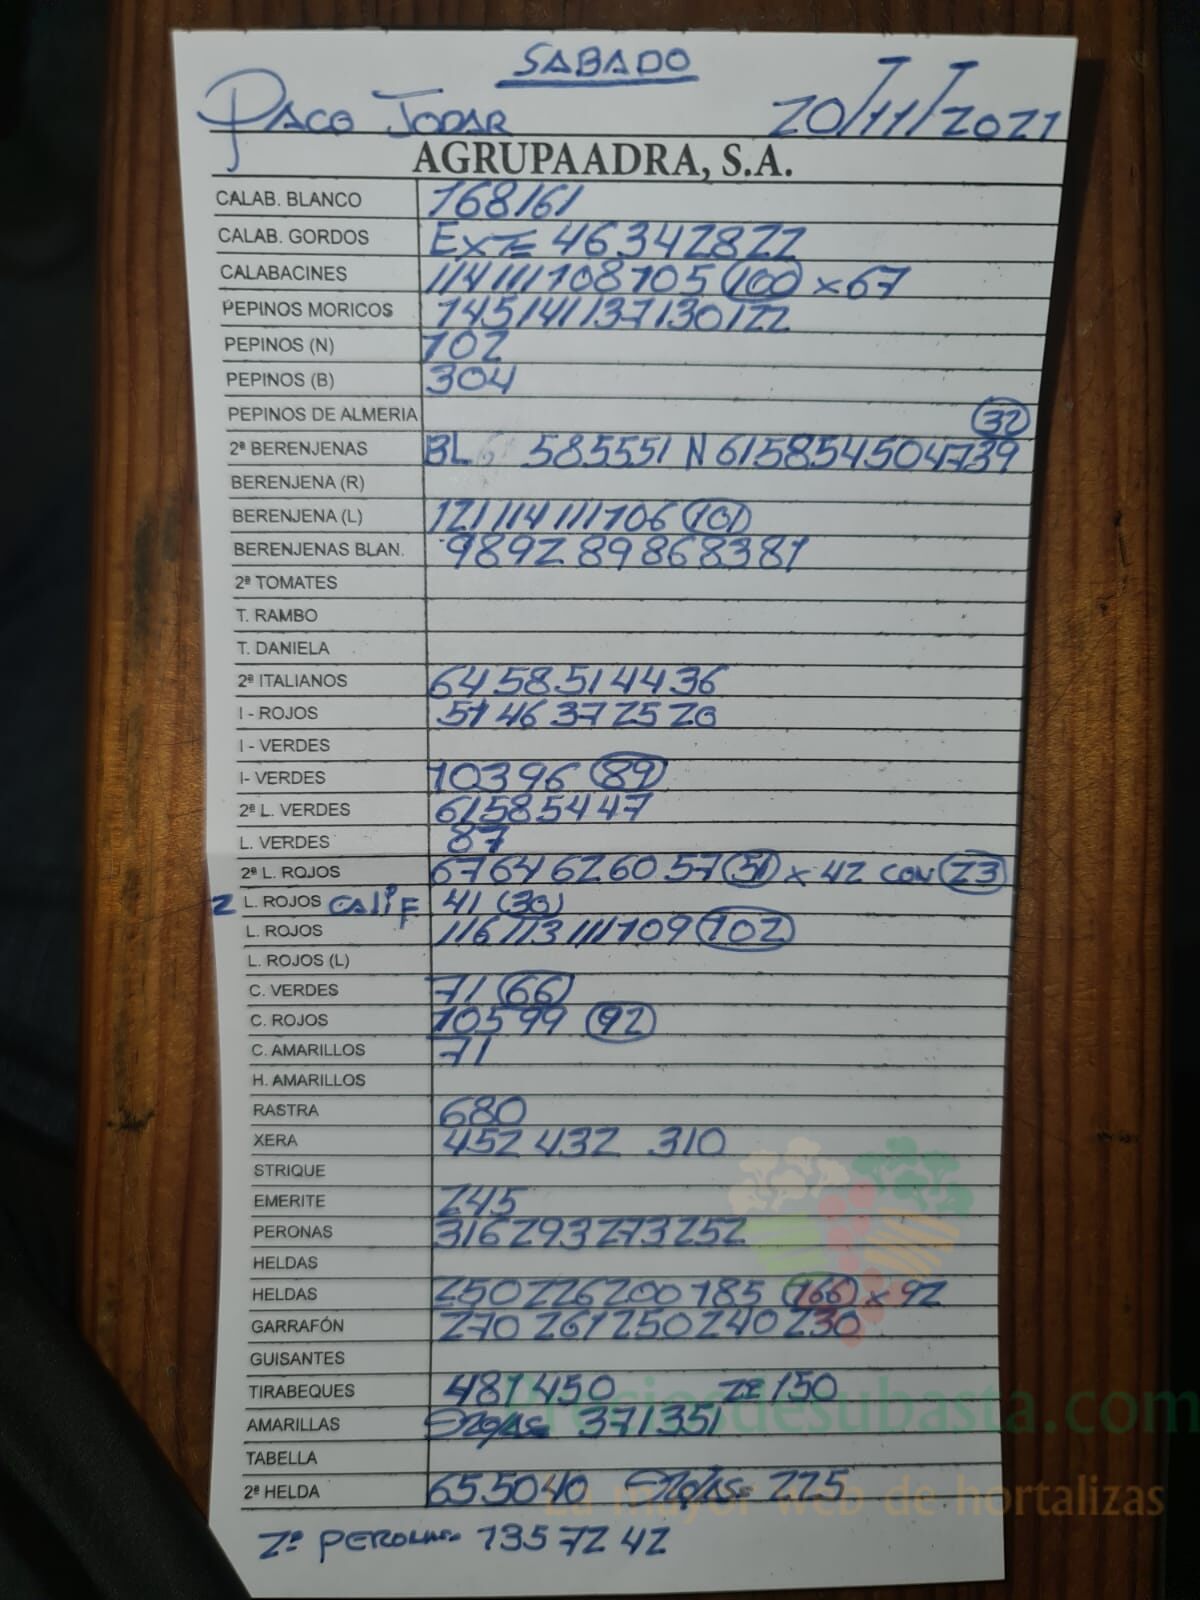 SABADO
PACO JODAR 20/11/2021
AGRUPAADRA, S.A.
CALAB. BLANCO 168161
CALAB. GORDOS EXTª 4634 28 22
CALABACINES 114 111 108 105 (100) x 67
PEPINOS MORICOS 145 141 137 130 122
PEPINOS (N) 102
PEPINOS (B) 304
PEPINOS DE ALMERIA (32)
2ª BERENJENAS BL 58 55 51 N 61 58 54 50 47 39
BERENJENA (R)
BERENJENA (L) 121 114 111 106 (101)
BERENJENAS BLAN. 98 92 89 86 83 81
2ª TOMATES
T. RAMBO
T. DANIELA
2ª ITALIANOS 64 58 51 44 36
I - ROJOS 51 46 37 25 20
I - VERDES
I- VERDES 103 96 (89)
2ª L. VERDES 61 58 54 47
L. VERDES 87
2ª L. ROJOS 67 64 62 60 57 (51) x 42 CON (23)
2 L. ROJOS CALIF 41 (30)
L. ROJOS 116 113 111 109 (102)
L. ROJOS (L)
C. VERDES 71 (66)
C. ROJOS 105 99 (92)
C. AMARILLOS 71
H. AMARILLOS
RASTRA 680
XERA 452 432 310
STRIQUE
EMERITE 245
PERONAS 316 293 273 252
HELDAS
HELDAS 250 226 200 185 (166) x 92
GARRAFÓN 270 261 250 240 230
GUISANTES
TIRABEQUES 481 450 2ª 150
AMARILLAS 371 351
TABELLA
2ª HELDA 65 50 40 225
2ª PERONAS 135 72 42
Preciosdesubasta.com
La mayor web de hortalizas